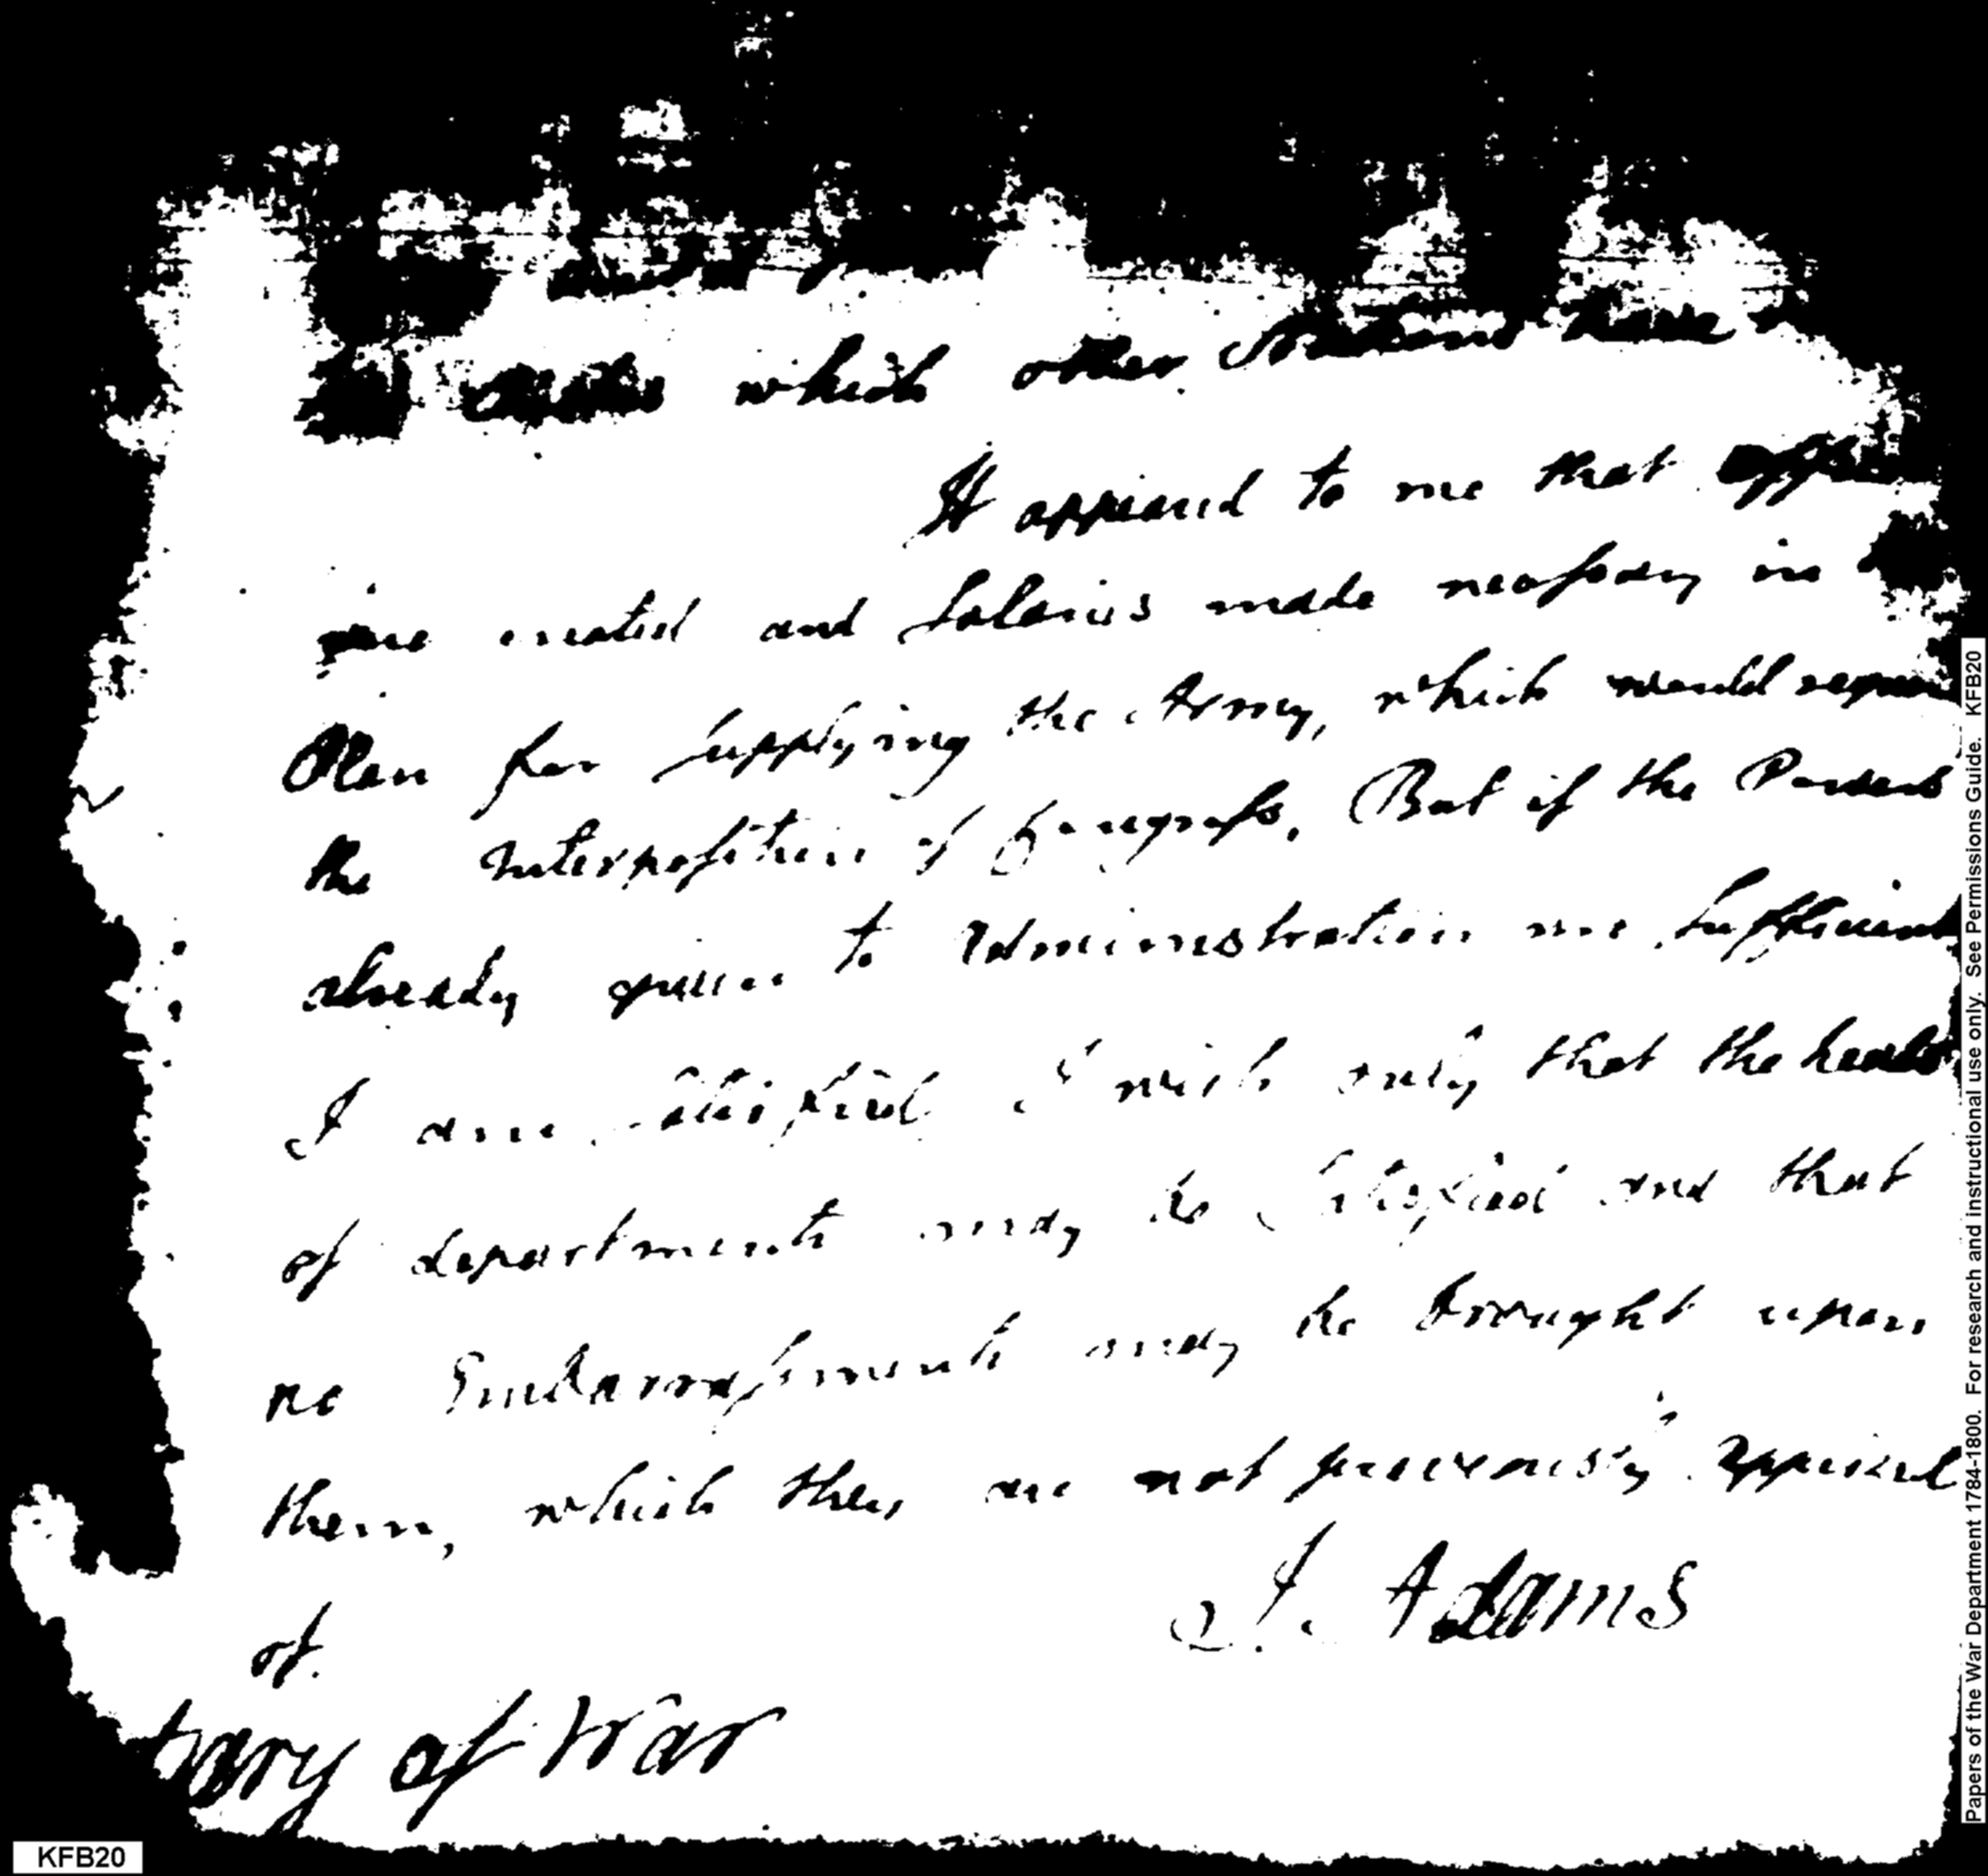 which other
It appeared to me that
were created and Salaries made necessary in
Plan for supplying the Army, which would require
the Interposition of Congress. But if the Powers
already given to Administration are sufficient
I am satisfied. I wish only that the heads
of departments may be satisfied and that
no Embarrassments may be brought upon
them, which they are not previously apprised
of.
J. Adams
tary of War
KFB20
Papers of the War Department 1784-1800. For research and instructional use only. See Permissions Guide. KFB20